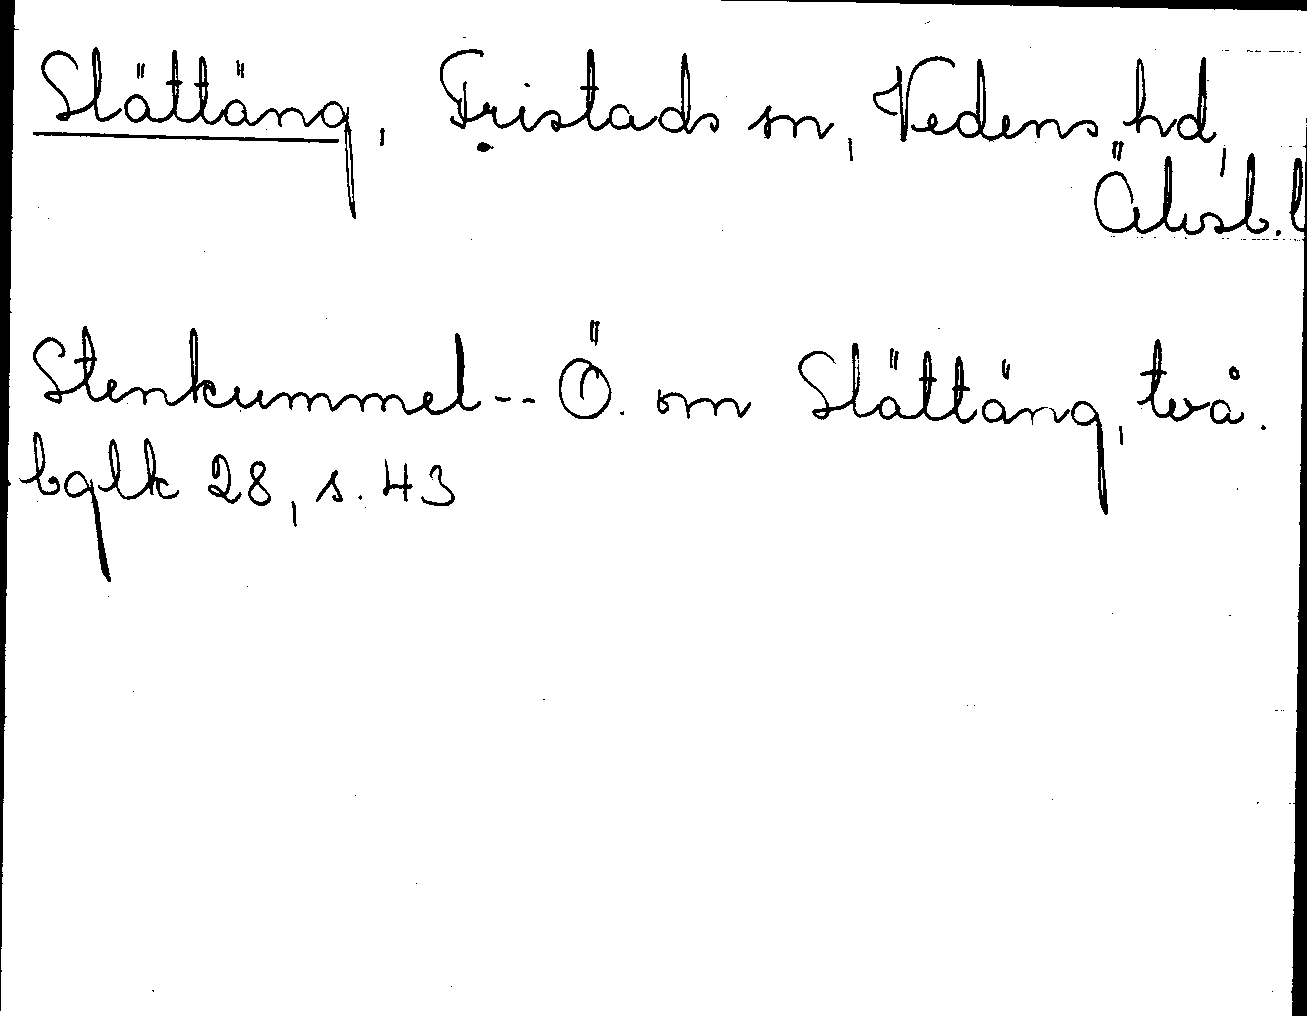 Slättäng, Fristads sn, Vedens hd,
Älvsb. l
Stenkummel -- Ö. om Slättäng, två.
bglk 28, s. 43